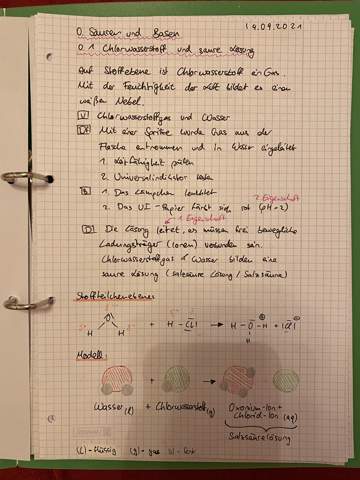 14.09.2021
0. Säuren und Basen
0.1 Chlorwasserstoff und saure Lösung
Auf Stoffebene ist Chlorwasserstoff ein Gas.
Mit der Feuchtigkeit der Luft bildet es einen
weißen Nebel.
V Chlorwasserstoffgas und Wasser
Df Mit einer Spritze wurde Gas aus der
Flasche entnommen und in Wasser eingeleitet
1. Leitfähigkeit prüfen
2. Universalindikator
B 1. Das Lämpchen leuchtet
2. Eigenschaft
2. Das U.I.-Papier färbt sich rot (pH=2)
1. Eigenschaft
D Die Lösung leitet, es müssen frei bewegliche
Ladungsträger (Ionen) vorhanden sein.
Chlorwasserstoffgas & Wasser bilden eine
saure Lösung (salzsaure Lösung / Salzsäure)
Stoffteilchenebene:
H O H + H-Cl → H-O-H + |Cl|
H
Modell:
+ →
Wasser(l) + Chlorwasserstoff(g) Oxonium-Ion +
Chlorid-Ion (aq)
Salzsäurelösung
(l)-flüssig (g)-gas (s)-fest